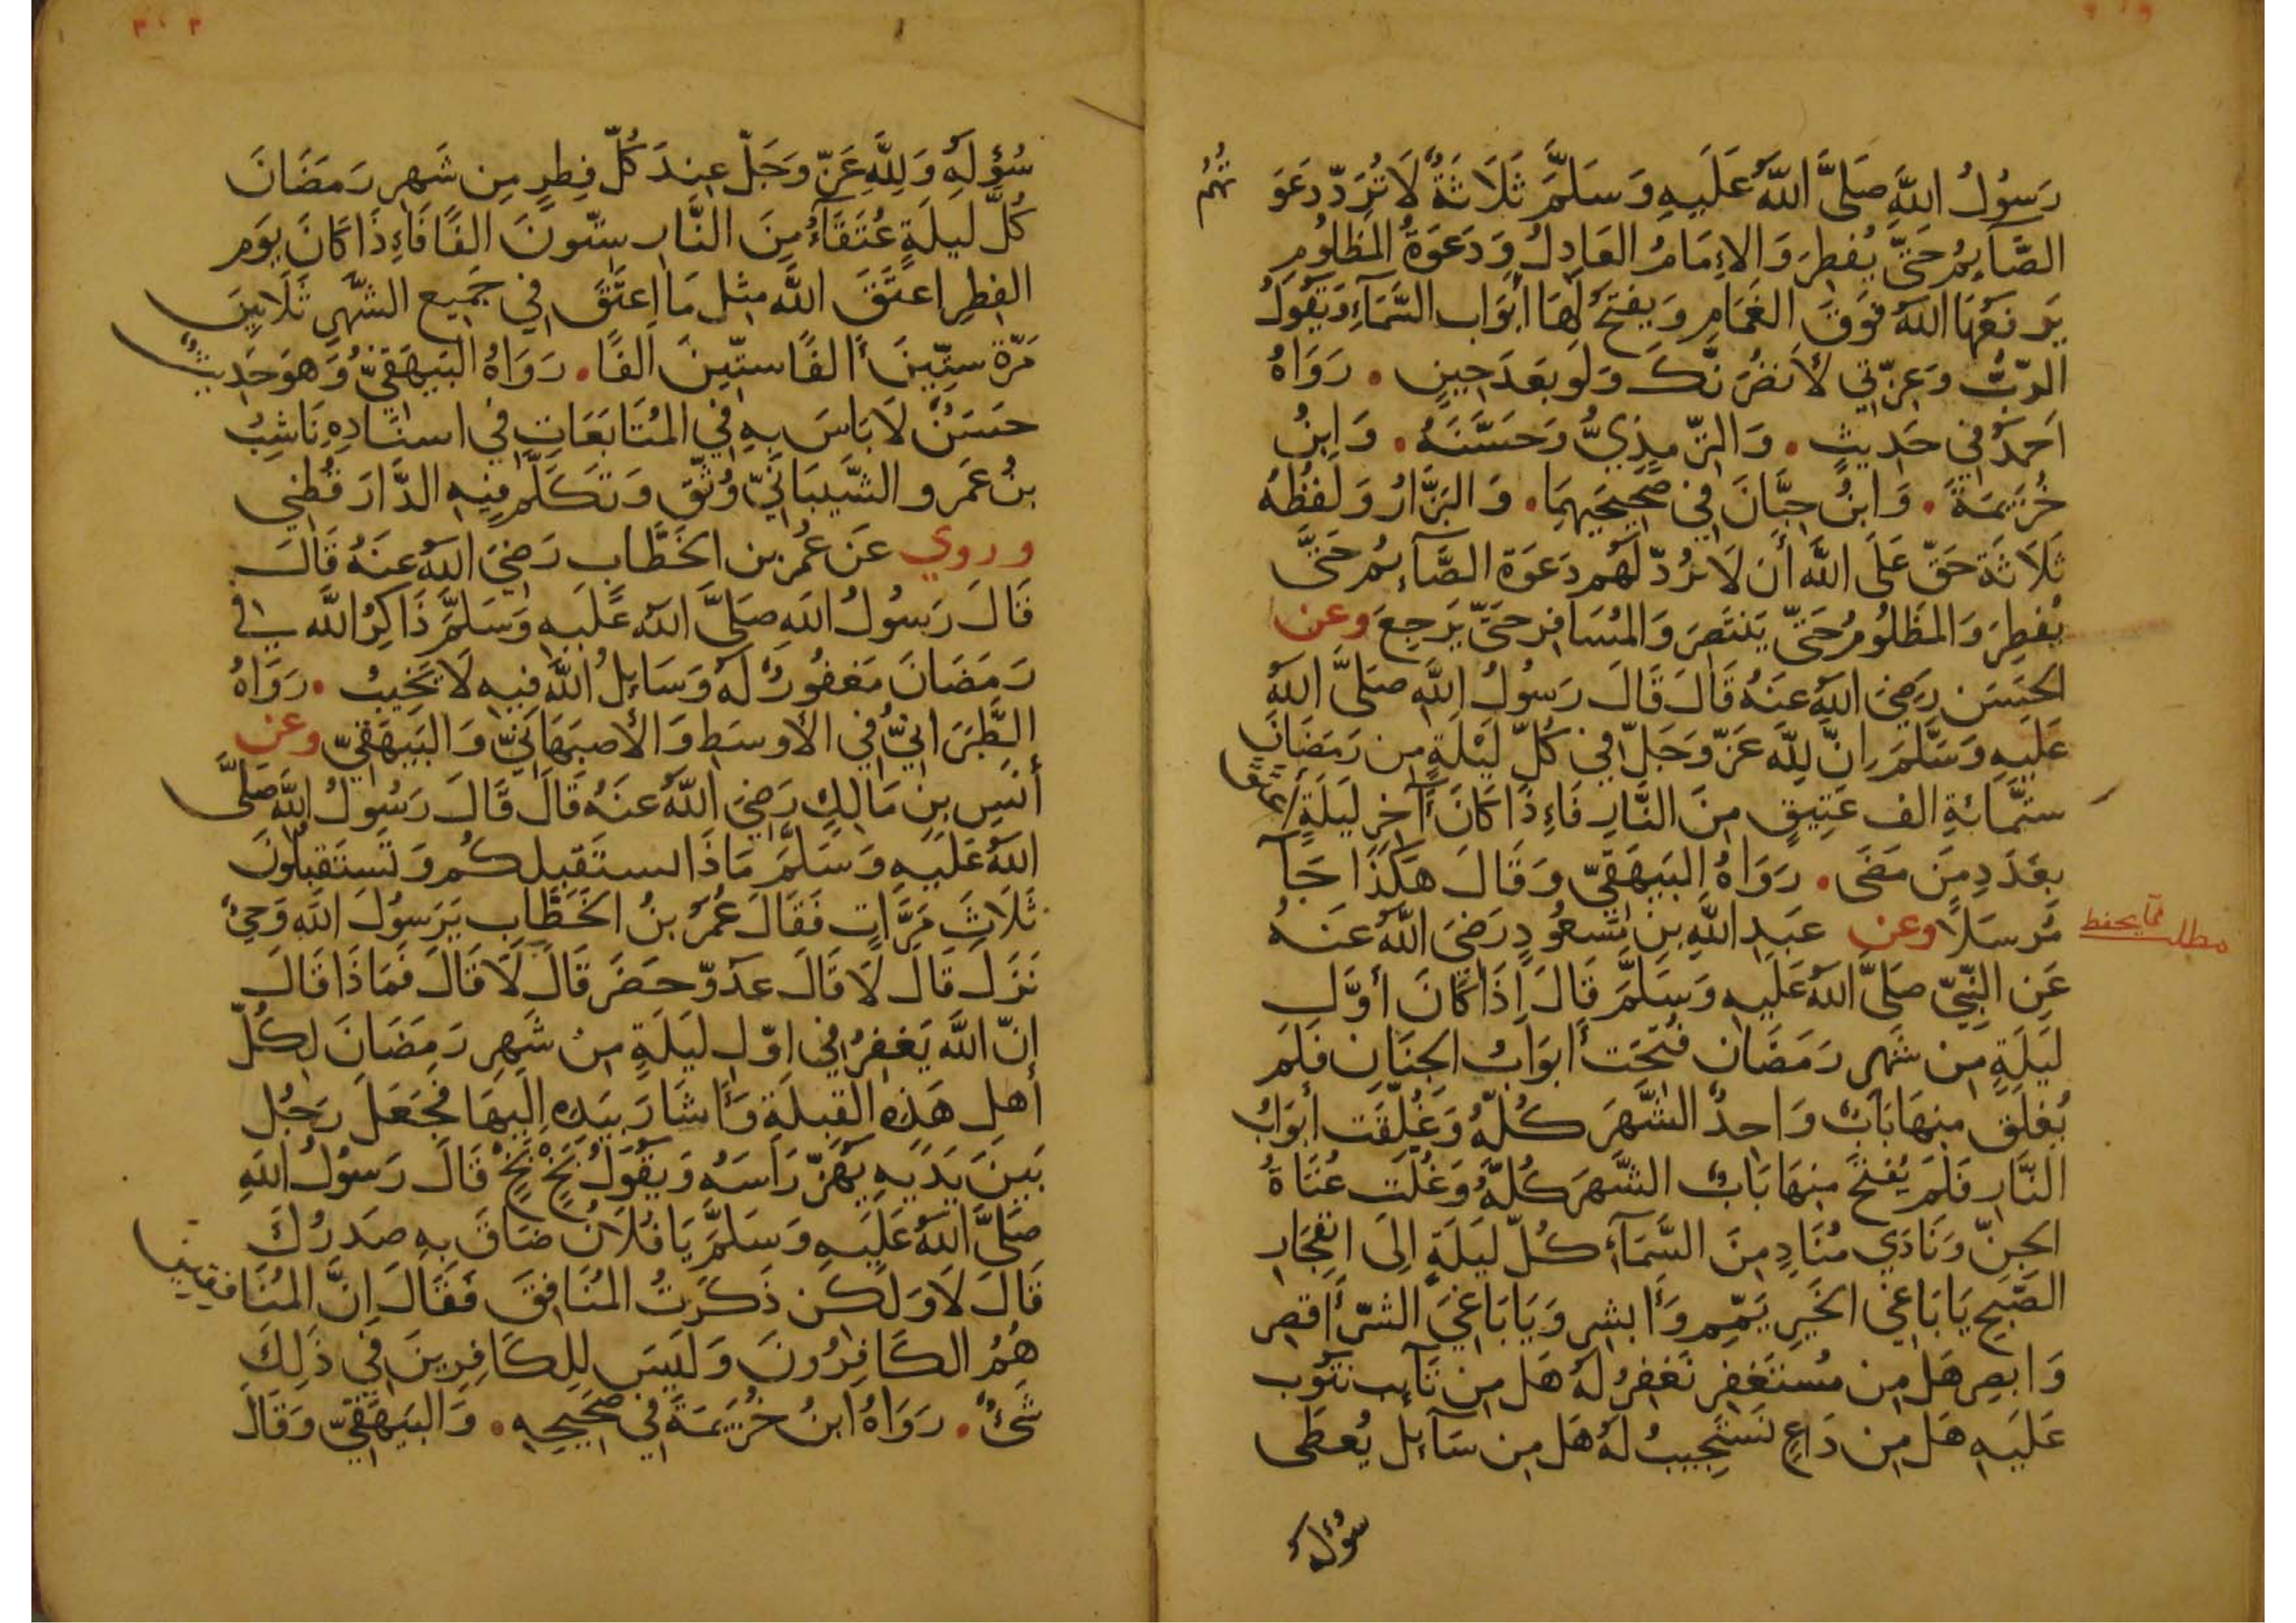 رَسُولُ اللَّهِ صَلَّى اللَّهُ عَلَيهِ وَسَلَّمَ ثَلَاثَةٌ لَا تُرَدّ دَعَوَ تُهُمُ
الصَّآيِمُ حَتَّى يُفطِرَ وَالاِمَامُ العَادِلُ وَدَعَوَةُ المَظلُومِ
يَرفَعُهَا اللهُ فَوَقَ الغَمَامِ وَيَفتَحُ لَهَا أبَوَاب السَّمَآءِ وَيَقُولُ
الرّبُّ وَعِزّتِي لَأَنصُرَنَّكَ وَلَو بَعَدَ حِينٍ . رَوَاهُ
اَحمَدُ فِي حَدِيثٍ . وَالتّرمِذِيُّ وَحَسَّنَهُ . وَابنُ
خُزَيمَةَ . وَابنُ حِبَّانَ فِي صَحِيحَيهِمَا . وَالبَزَّارُ وَلَفظُهُ
ثَلَاثَة حَقّ عَلَى اللَّهِ أن لَا يَرُدّ لَهُم دَعَوَة الصَّآئِمُ حَتَّى
يُفطِرَ وَالمَظلُومُ حَتَّى يَنتَصِرَ وَالمُسَافِر حَتَّى يَرجِعَ وعن
الحَسَن رَضِيَ اللهُ عَنهُ قَالَ قَالَ رَسُولُ اللَّهِ صَلَّى اللهُ
عَلَيهِ وَسَلَّمَ اِنَّ لِلَّهِ عَزّ وَجَلّ فِي كُلّ لَيْلَةٍ مِن رَمَضَانَ
ستّمِائَةِ الف عَتِيقٍ مِنَ النَّارِ فَاءِذَا كَانَ آخِرُ لَيلَةٍ أعتَقَ
بِعَدَدِ مَن مَضَى . رَوَاهُ البَيهَقِيّ وَقَالَ هَكَذَا جَآ
مُرسَلًا وعن عَبدِ اللَّهِ بنِ مَسعُودٍ رَضِيَ اللهُ عَنهُ
مطلب مما يحفظ
عَنِ النَّبِيّ صَلَّى اللهُ عَلَيهِ وَسَلَّمَ قَالَ إذَا كَانَ أوَّل
لَيلَةٍ مِن شَهرِ رَمَضَان فُتحَت أبوَابُ الجِنَانِ فَلَم
يُغلَق مِنهَا بَابٌ وَاحِدٌ الشَّهرَ كُلّهُ وَغُلِّقَت أبوَابُ
النّار فَلَم يُفتَح مِنهَا بَابٌ الشَّهرَ كُلّهُ وَغُلّت عُتَاةُ
الجِنّ وَنَادَي مُنَادٍ مِنَ السَّمَآءِ كُلّ لَيلَةٍ إلَى انفِجَارِ
الصّبحِ يَا بَاغِيَ الخَيرِ يَمّم وَأبشِر وَيَا بَاغِيَ الشَّرّ أقصِر
وَابصِر هَل مِن مُستَغفِر نَغفِرُ لَهُ هَل مِن تَآئِب نَتُوب
عَلَيهِ هَل مِن دَاعٍ نَستَجِيبُ لَهُ هَل مِن سَآئِل يُعطَى
سُؤلهُ
سُؤلهُ وَلِلَّهِ عَزّ وَجَلّ عِندَ كُلّ فِطرٍ مِن شَهرِ رَمَضَانَ
كُلّ لَيلَةٍ عُتَقَآءُ مِنَ النَّارِ ستّونَ الفًا فَاءِذَا كَانَ يَوم
الفِطرِ اعتَقَ اللَّه مِثل مَا اعتَقَ فِي جَمِيع الشّهرِ ثَلَاثِينَ
مَرّة ستّينَ ألفًا ستّينَ الفًا . رَوَاهُ البَيهَقِيّ وَهُوَ حَدِيثٌ
حَسَنٌ لَا بَاسَ بِهِ فِي المُتَابَعَاتِ فِي اسنَادِهِ نَاشِبُ
بنُ عَمَرو الشَّيبَانِيّ وُثّقَ وَتَكَلَّم فِيهِ الدَّارَقُطنِي
وروي عَن عُمَرَ بن الخَطَّاب رَضِيَ اللهُ عَنهُ قَالَ
قَالَ رَسُولُ اللَّهِ صَلَّى اللهُ عَلَيهِ وَسَلَّمَ ذَاكِرُ اللَّهِ فِي
رَمَضَانَ مَغفُورٌ لَهُ وَسَايِلُ اللَّهِ فِيهِ لَا يَخِيبُ . رَوَاهُ
الطَّبَرَانِيُّ فِي الأوسَطِ وَالأصبَهَانِيّ وَالبَيهَقِيّ وعن
أنَسِ بنِ مَالِكٍ رَضِيَ اللَّهُ عَنهُ قَالَ قَالَ رَسُولُ اللَّهِ صَلَّى
اللهُ عَلَيهِ وَسَلَّمَ مَاذَا استَقبلكُم وَتَستَقبِلُونَ
ثَلَاثَ مَرَّاتٍ فَقَالَ عُمَرُ بنُ الخَطَّابِ يَرَسُولَ اللهِ وَحيٌ
نَزَلَ قَالَ لَا قَالَ عَدُوّ حَضَرَ قَالَ لَا قَالَ فَمَاذَا قَالَ
إنّ اللَّهَ يَغفِرُ فِي اوّل لَيلَةٍ مِن شَهرِ رَمَضَانَ لِكُلّ
أهلِ هَذِهِ القِبلَةِ وَأشَارَ بِيَدِهِ اِلَيهَا فَجَعَلَ رَجُل
بَينَ يَدَيهِ يَهُزّ رَاسَهُ وَيَقُولُ بَخٍ بَخٍ قَالَ رَسُولُ اللهِ
صَلَّى اللهُ عَلَيهِ وَسَلَّمَ يَا فُلَانُ ضَاقَ بِهِ صَدرُكَ
قَالَ لَا وَلَكِن ذَكَرتُ المُنَافِقَ فَقَالَ اِنَّ المُنَافِقِينَ
هُمُ الكَافِرُونَ وَلَيسَ لِلكَافِرِينَ فِي ذَلِكَ
شَيءٌ . رَوَاهُ ابنُ خُزَيمَةَ فِي صَحِيحِهِ . وَالبَيهَقِيّ وَقَالَ